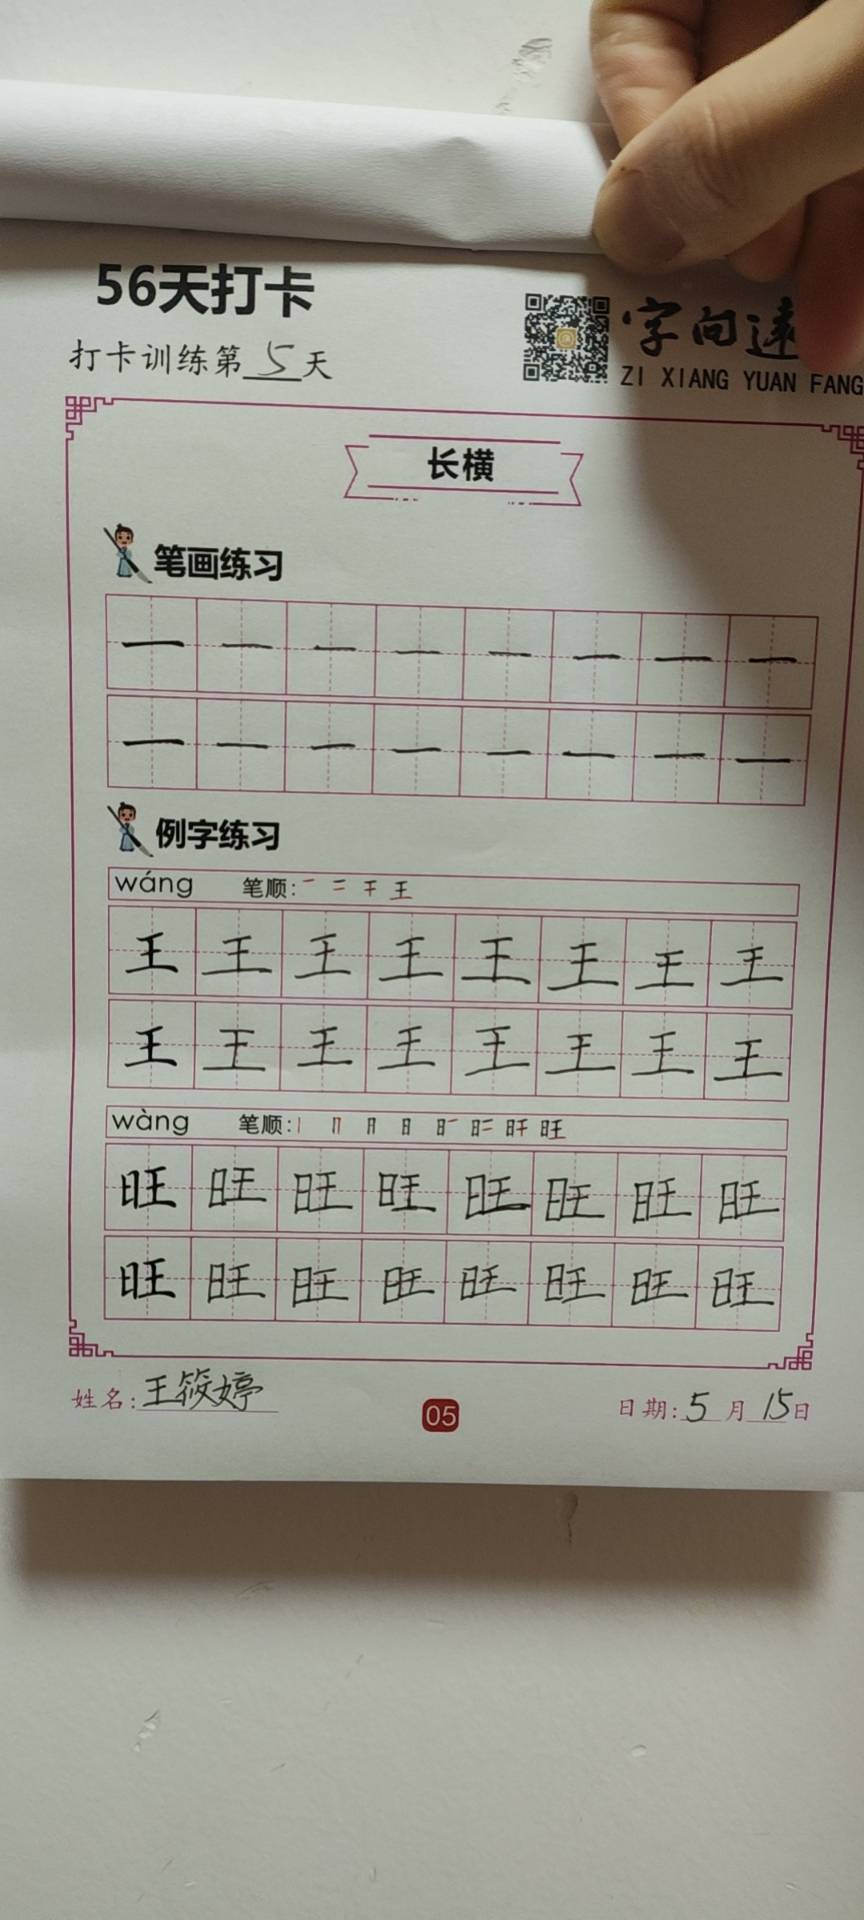 56天打卡
打卡训练第5天
字向远
ZI XIANG YUAN FANG
长横
笔画练习
一 一 一 一 一 一 一 一
一 一 一 一 一 一 一 一
例字练习
wáng 笔顺: 一 二 干 王
王 王 王 王 王 王 王 王
王 王 王 王 王 王 王 王
wàng 笔顺:
旺 旺 旺 旺 旺 旺 旺 旺
旺 旺 旺 旺 旺 旺 旺 旺
姓名:王筱婷
05
日期:5月15日